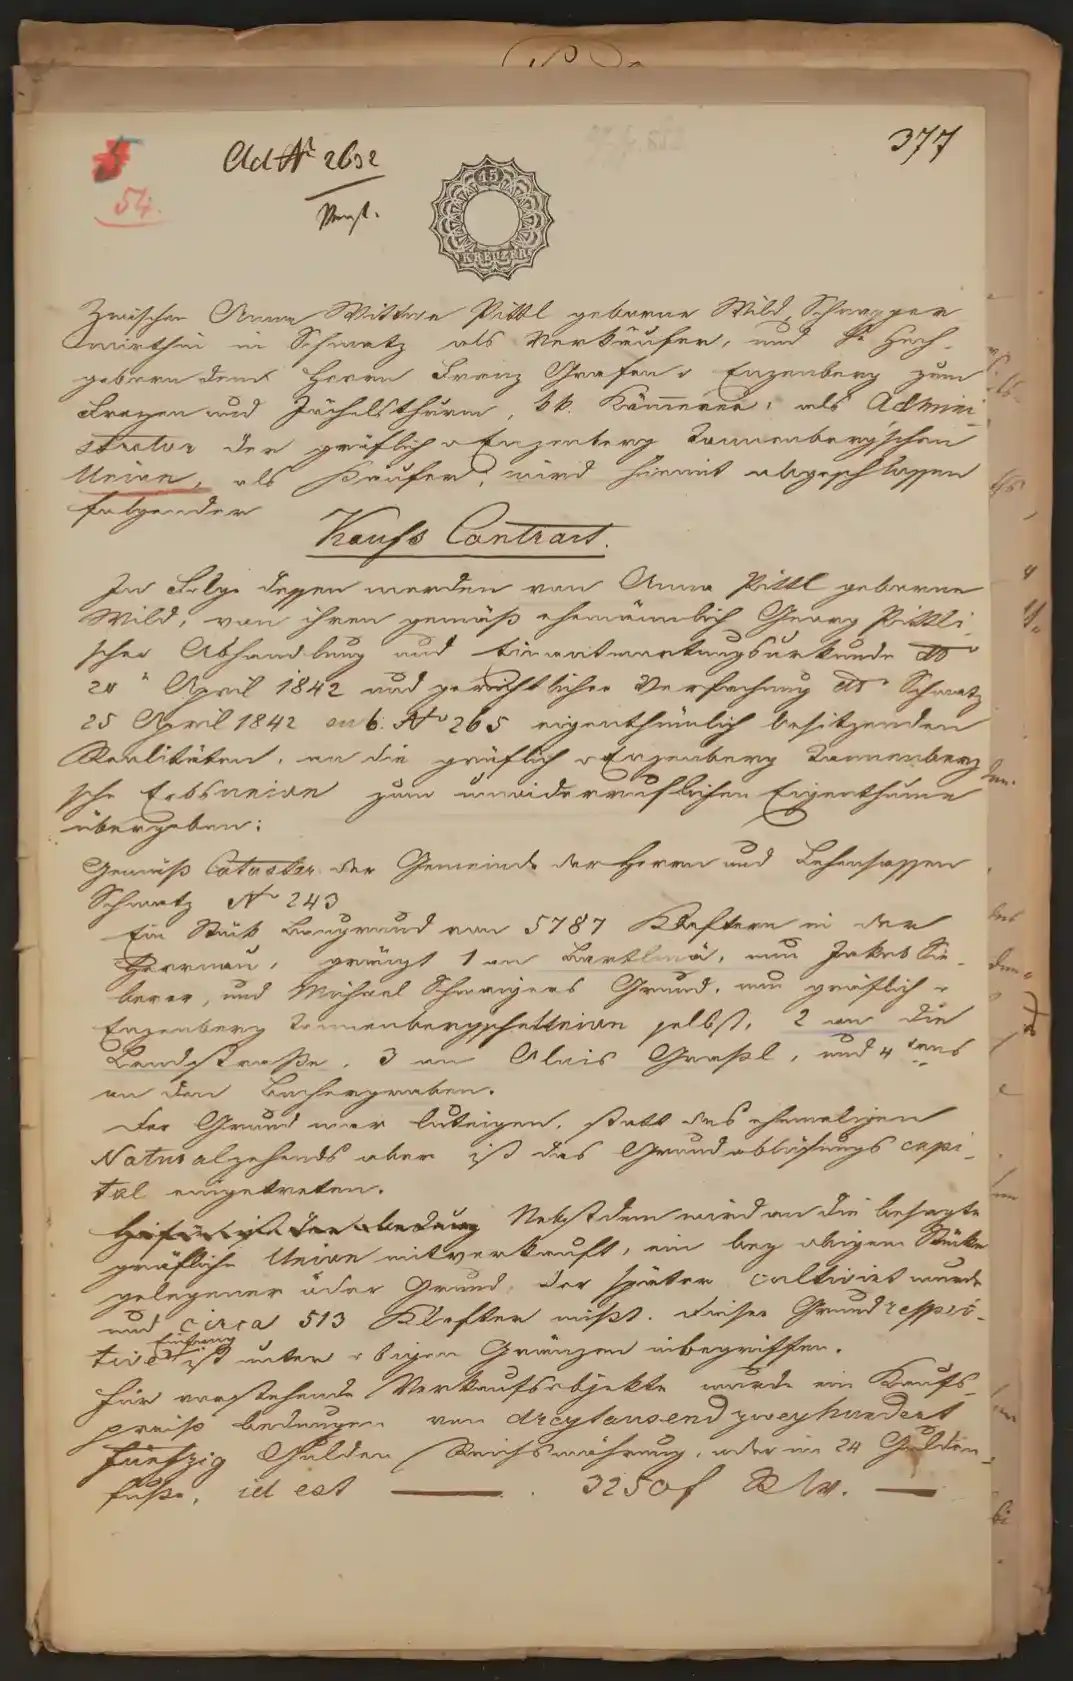 377
5
54.
Ad Nr 2632
15
KREUZER
Zwischen Anna Wittwe Pittl geborne Wild, Schnapper
wirthin in Schwatz als Verkäufer, und Sr Hoch-
gebornen dem Herrn Franz Grafen v Enzenberg zum
Freyen und Jöchelsthurn, kk. Kämmerer, als Admini-
strator der gräflich v Enzenberg Tannenberg'schen
Union, als Käufer, wird hiemit abgeschlossen
folgender
Kaufs Contract.
In Folge dessen werden von Anna Pittl geborne
Wild, von ihren gemäß ehemännlich Georg Pittli-
scher Abhandlung und Einantwortungsurkunde dto
20 April 1842 und gerichtlicher Verfachung dto Schwatz
25 April 1842 sub. No 265 eigenthümlich besitzenden
Realitäten, an die gräflich v Enzenberg Tannenberg
sche Erbsunion zum unwiderruflichen Eigenthume
übergeben:
Gemäß Cataster der Gemeinde der Herrn und Lehensassen
Schwatz No 243
Ein Stück Baugrund von 5787 Klaftern in der
gränzt 1 an Bartlmä, nun Jakob Sie-
berer, und Michael Schwaigers Grund, nun gräflich v
Enzenberg Tannenbergsche Union selbst, 2 an die
Landstraße, 3 an Alois Graßl, und 4tens
an den Buchergraben.
Der Grund war luteigen, statt des ehemaligen
Naturalzehends aber ist das Grundablösungs capi-
tal eingetreten.
Nebstdem wird an die besagte
gräfliche Union mitverkauft, ein bey obigem Stücke
gelegener öder Grund, der später cultivirt wurde
und circa 513 Klafter mißt. Dieser Grund respec-
tive ist unter obigen Gränzen inbegriffen.
Für vorstehende Verkaufsobjekte wurde ein Kaufs-
preiß bedungen von dreytausend zweyhundert
fünfzig Gulden Reichswährung, oder im 24 Gulden-
fuße, id est 3250 f RW.